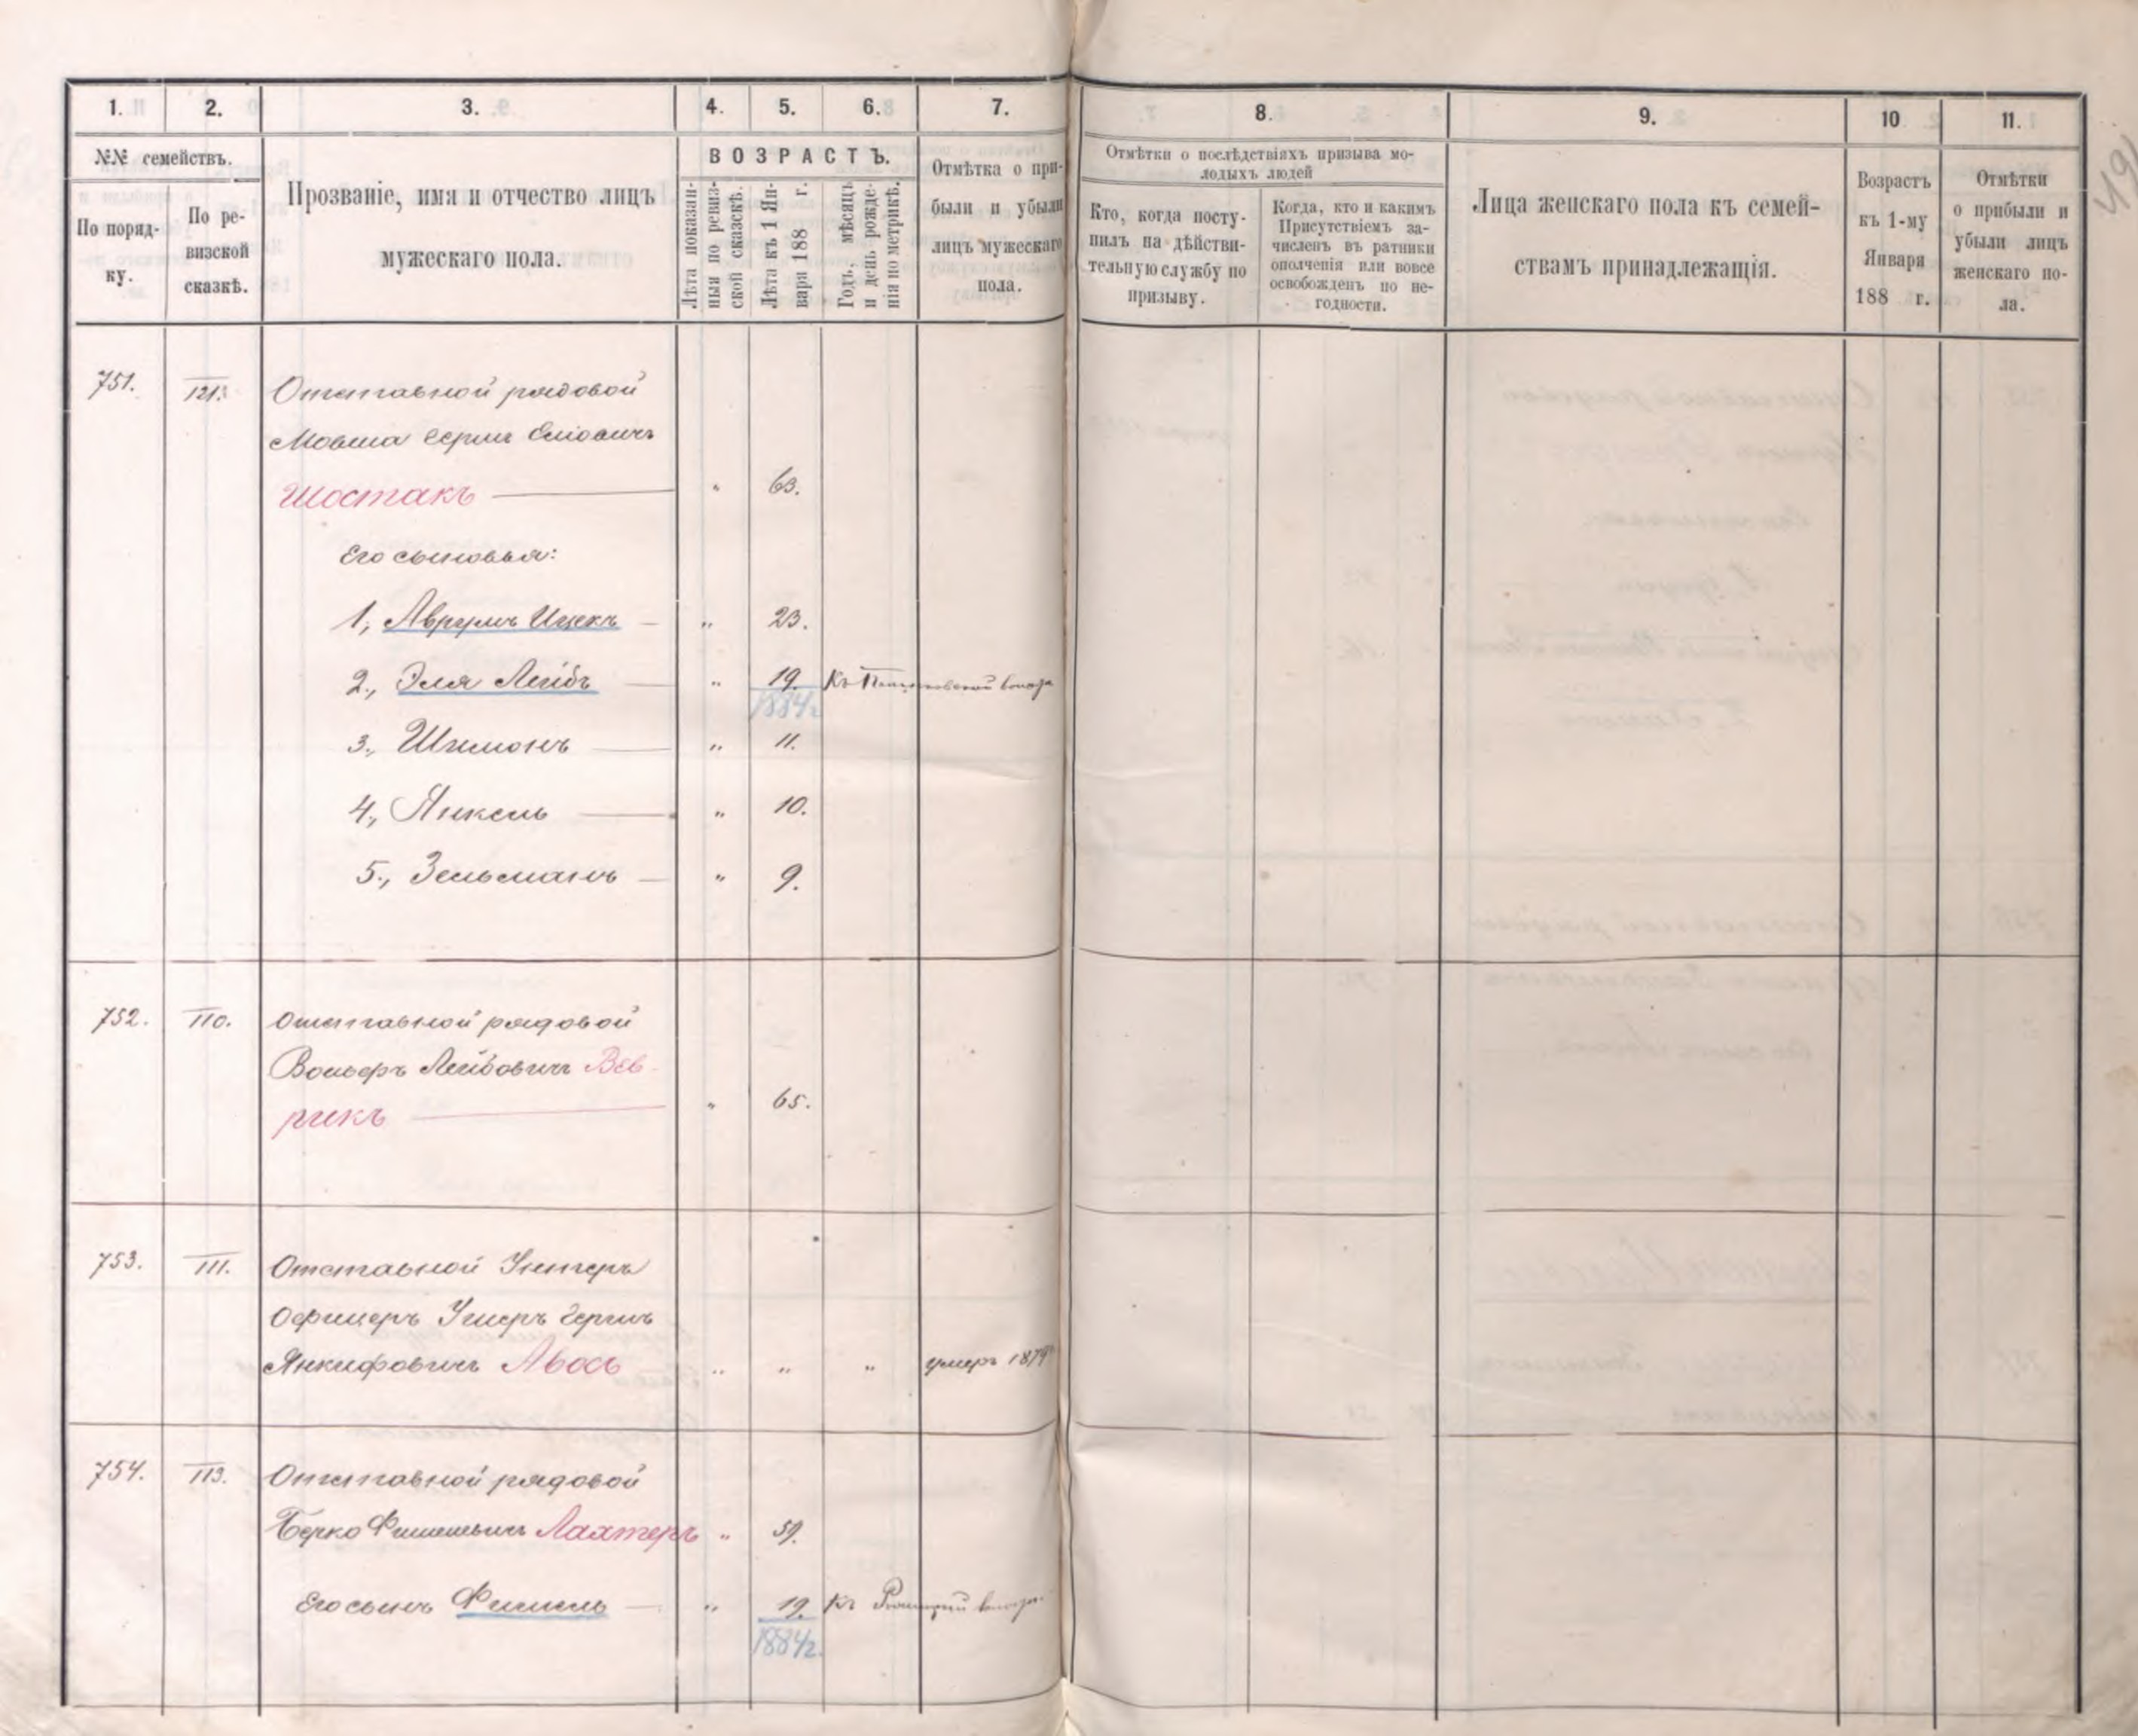 1. 2. 3. 4. 5. 6. 7. 8. 9. 10 11.
№№ семействъ.
По поряд-
ку.
По ре-
визской
сказкѣ.
Прозваніе, имя и отчество лицъ
мужескаго пола.
ВОЗРАСТЪ.
Лѣта показан-
ныя по ревиз-
ской сказскѣ.
Лѣта къ 1 Ян-
варя 188 г.
Годъ, мѣсяцъ
и день рожде-
нія по метрикѣ.
Отмѣтка о при-
были и убыли
лицъ мужескаго
пола.
Отмѣтки о послѣдствіяхъ призыва мо-
лодыхъ людей
Кто, когда посту-
пилъ на дѣйстви-
тельную службу по
призыву.
Когда, кто и какимъ
Присутствіемъ за-
численъ въ ратники
ополченія или вовсе
освобожденъ по не-
годности.
Лица женскаго пола къ семей-
ствамъ принадлежащія.
Возрастъ
къ 1-му
Января
188 г.
Отмѣтки
о прибыли и
убыли лицъ
женскаго по-
ла.
751. 121. Отставной рядовой
Мовша Герш
Шостакъ " 63.
Его сыновья:
1, Аврумъ Ицекъ " 23.
2, Эля Лейбъ " 19. Къ
1884 г
3, Шимонъ " 11.
4, Янкель " 10.
5, Зельманъ " 9.
752. 110. Отставной рядовой
Вольфъ Лейбовичъ Вев-
рикъ " 65.
753. 111. Отставной Унтеръ
Офицеръ Ушеръ Гершъ
Янкифовичъ Авось " " " умеръ 1879
754. 113. Отставной рядовой
Берко Фишелевичъ Лахтеръ " 59.
Его сынъ Фишель " 19. Къ
1884 г.